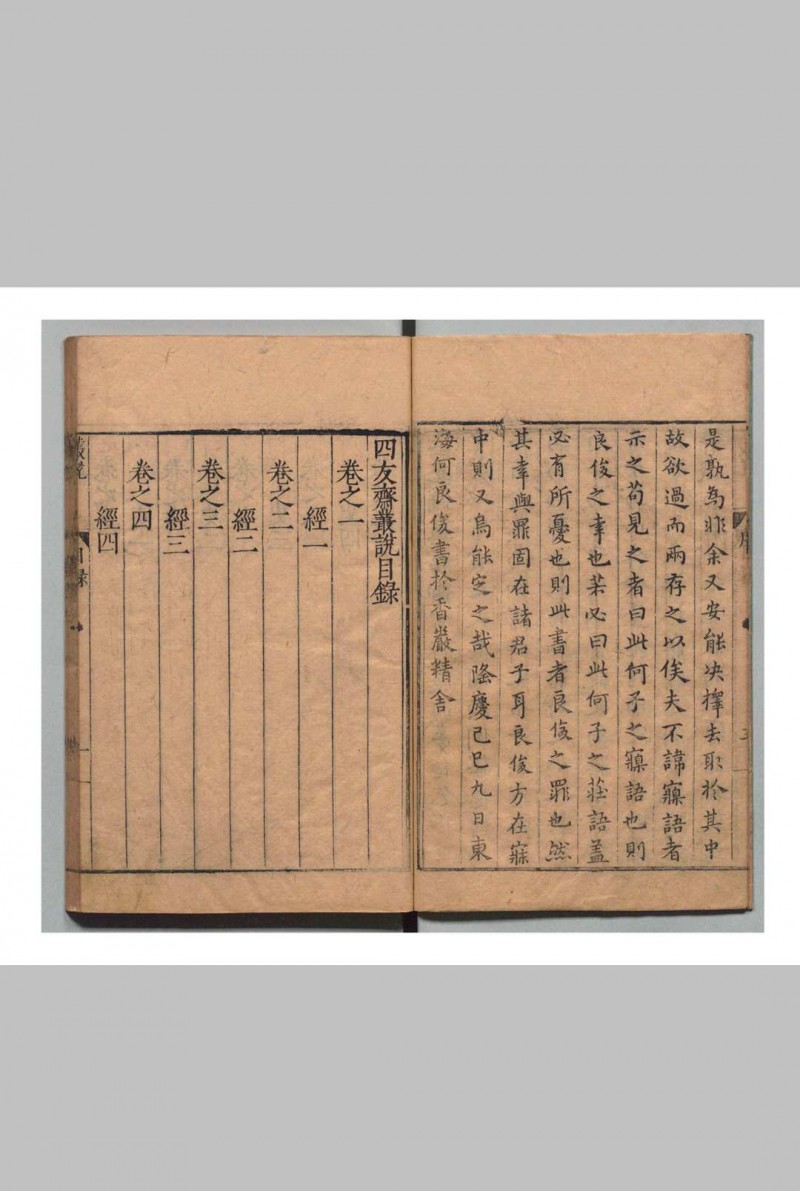 是孰為非余又安能决擇去取於其中
故欲過而兩存之以俟夫不諱寱語者
示之苟見之者曰此何子之寱語也則
良俊之幸也若必曰此何子之莊語蓋
必有所憂也則此書者良俊之罪也然
其幸與罪固在諸君子耳良俊方在寐
中則又烏能定之哉隆慶己巳九日東
海何良俊書於香嚴精舍
四友齋叢說目錄
卷之一
經一
卷之二
經二
卷之三
經三
卷之四
經四
叢說 目録 一